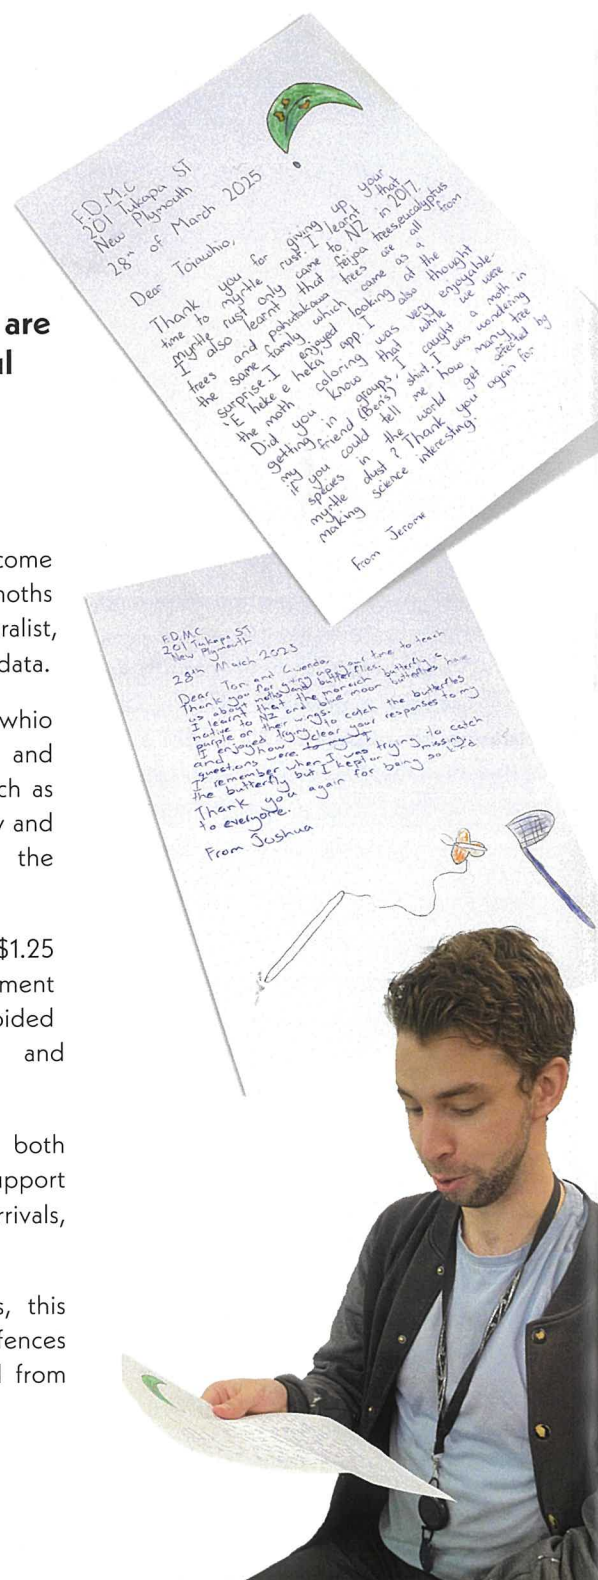 are
come
moths
ralist,
data.
whio
and
ch as
y and
the
$1.25
ment
oided
and
both
upport
rrivals,
s, this
fences
from
F.D.M.C
201 Tukapa ST
New Plymouth
28th of March 2025
Dear Toiawhio,
Thank you for giving up your
time to myrtle rust. I learnt that
myrtle rust only came to NZ in 2017.
I also learnt that feijoa trees, eucalyptus
trees and pohutakawa trees are all from
the same family which came as a
surprise. I enjoyed looking at the
'E heke e heka' app. I also thought
the moth coloring was very enjoyable.
Did you know that while we were
getting in groups, I caught a moth in
my friend (Ben's) shirt. I was wondering
if you could tell me how many tree
species in the world get affected by
myrtle dust? Thank you again for
making science interesting.
From Jerome
F.D.M.C
201 Tukapa ST
New Plymouth
28th March 2025
Dear Tom and
Thank you for giving up your time to teach
us about moths and butterflies.
I learnt that the monarch butterfly is
native to NZ and blue moon butterflies have
purple on their wings.
I enjoyed trying to catch the butterflies
and how clear your responses to my
questions were
I remember when I was trying to catch
the butterfly but I kept on missing.
Thank you again for being so
to everyone.
From Joshua